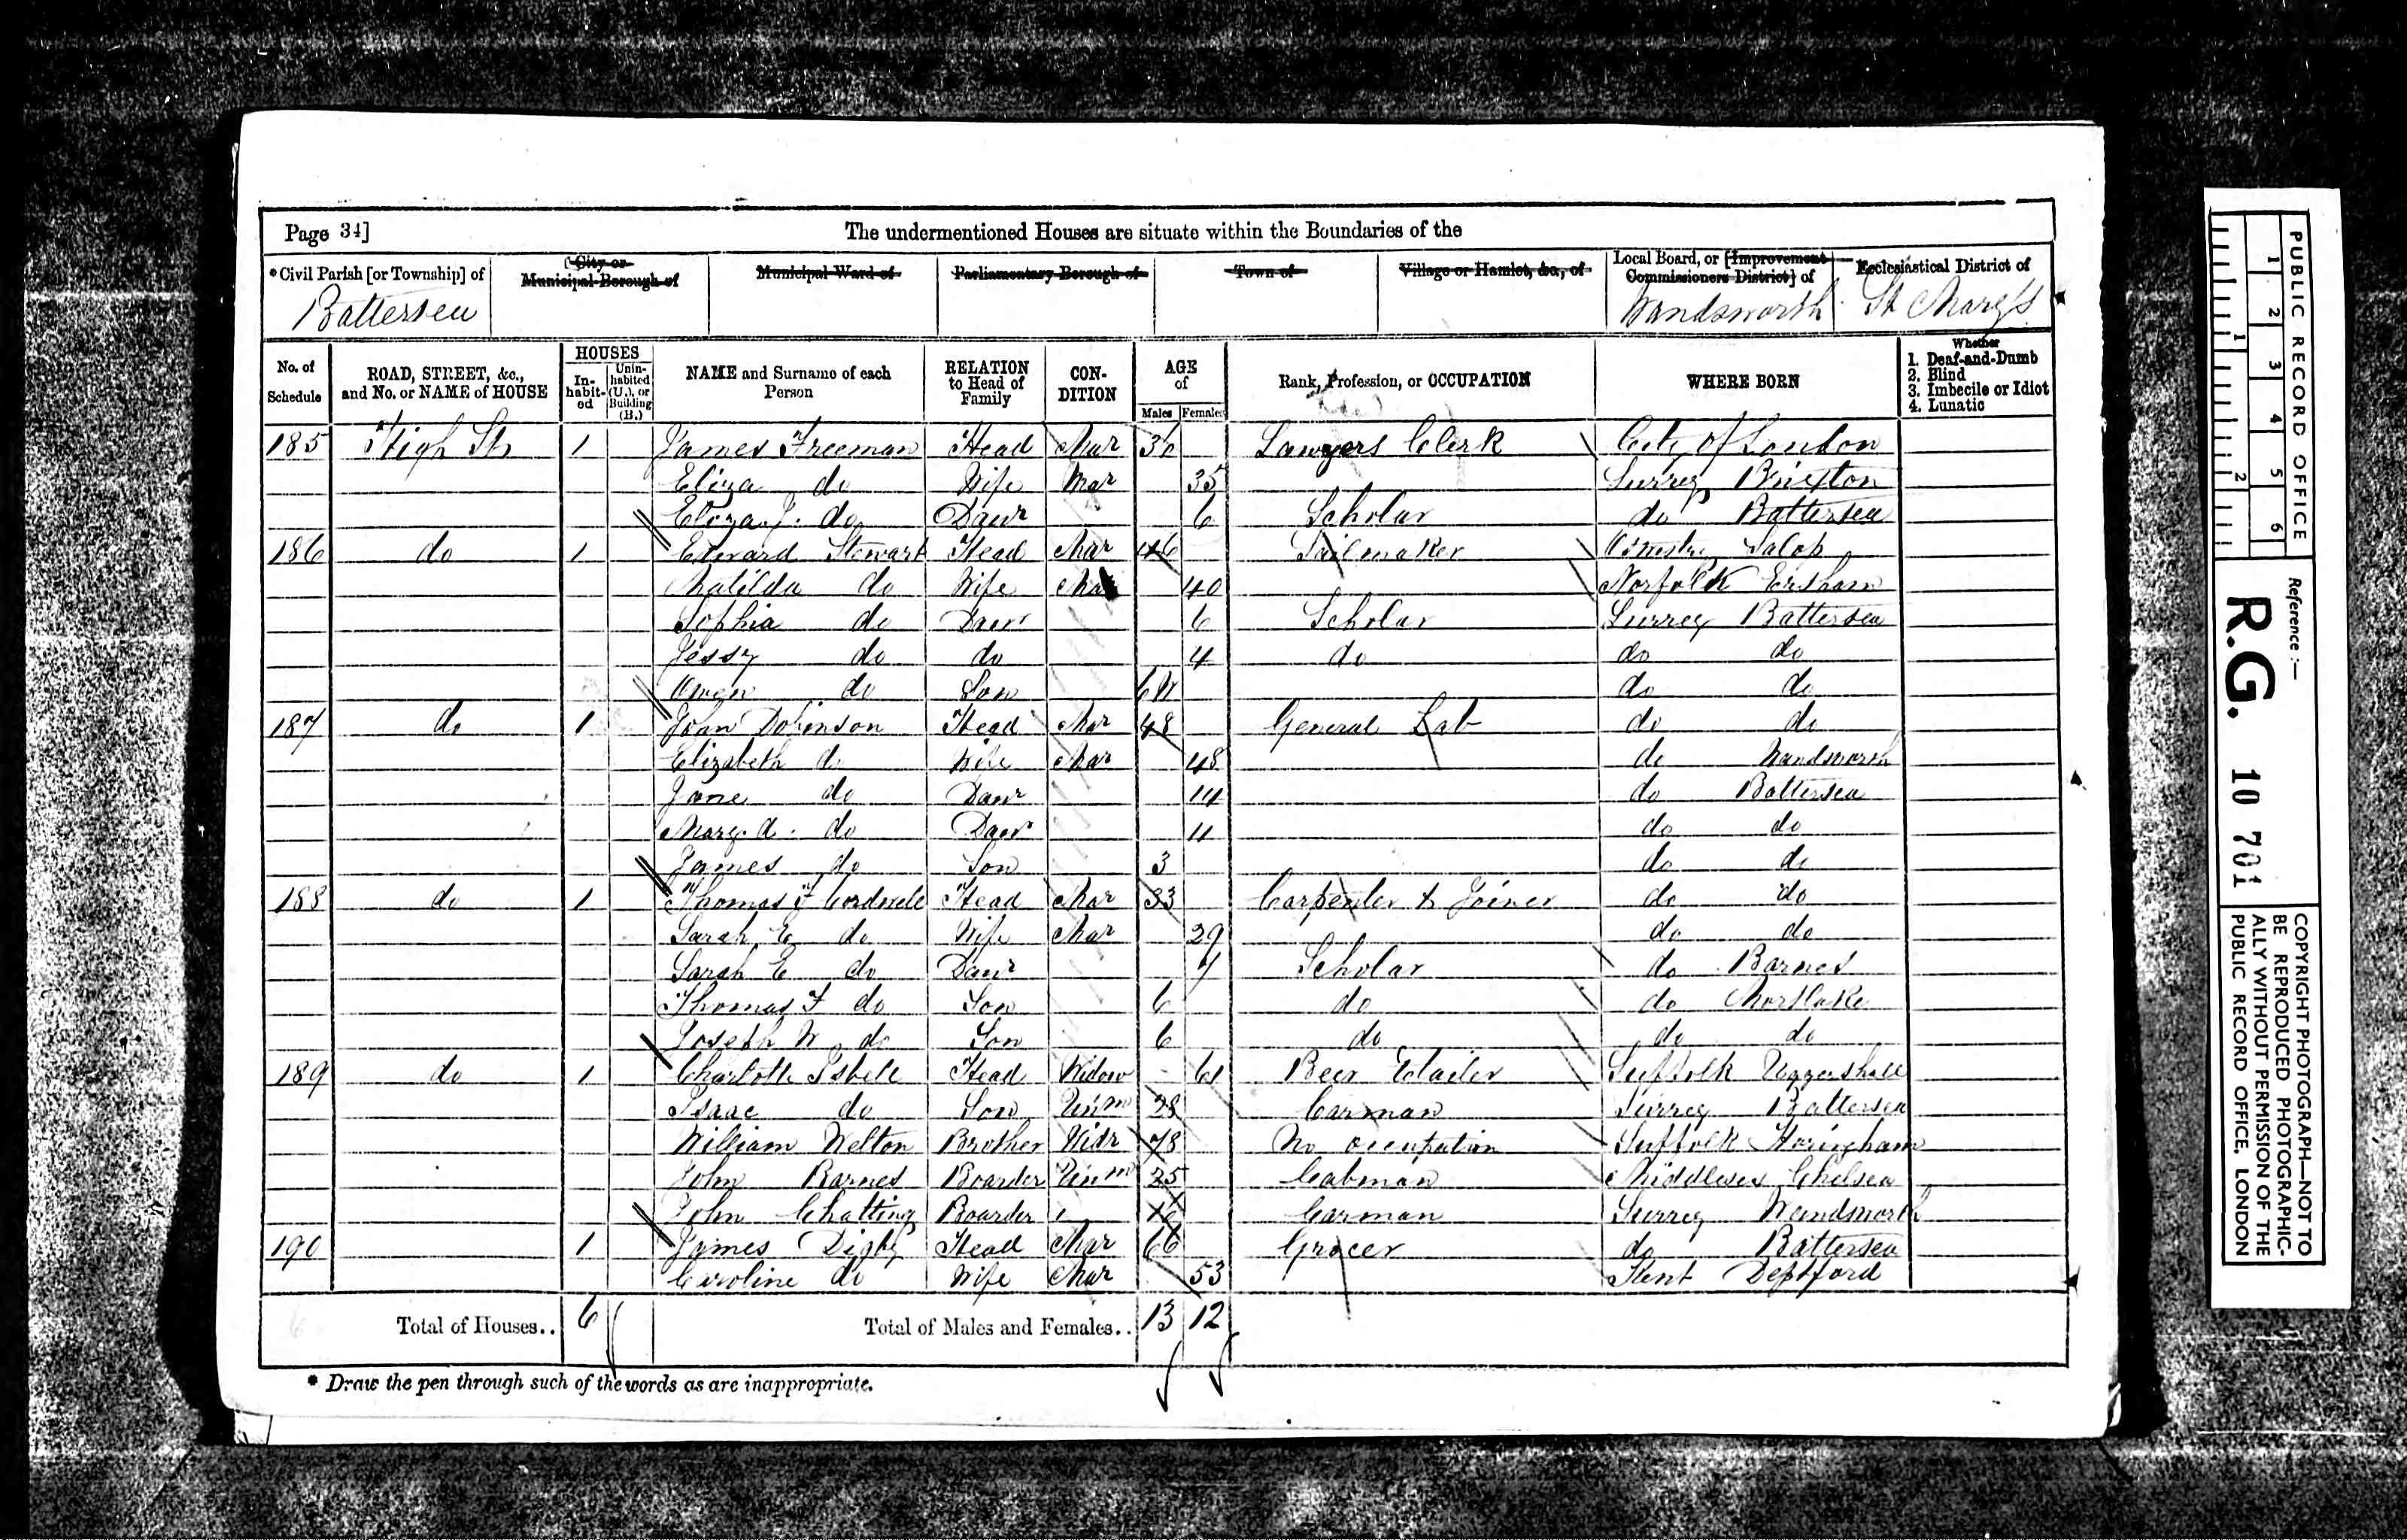 Page 34] The undermentioned Houses are situate within the Boundaries of the
*Civil Parish [or Township] of City or Municipal Borough of Municipal Ward of Parliamentary Borough of Town of Village or Hamlet, &c., of Local Board, or [Improvement Commissioners District] of Ecclesiastical District of
Battersea Wandsworth St Mary's
No. of Schedule ROAD, STREET, &c., and No. or NAME of HOUSE HOUSES Inhabited Uninhabited (U.), or Building (B.) NAME and Surname of each Person RELATION to Head of Family CONDITION AGE of Males Females Rank, Profession, or OCCUPATION WHERE BORN Whether 1. Deaf-and-Dumb 2. Blind 3. Imbecile or Idiot 4. Lunatic
185 High St 1 James Freeman Head Mar 36 Lawyers Clerk City of London
Eliza do Wife Mar 35 Surrey Brixton
Eliza J. do Daur 6 Scholar do Battersea
186 do 1 Edward Stewart Head Mar 46 Sailmaker Oswestry Salop
Matilda do Wife Mar 40 Norfolk Ersham
Sophia do Daur 6 Scholar Surrey Battersea
Jessy do do 4 do do do
Owen do Son do do
187 do 1 John Dobinson Head Mar 48 General Lab do do
Elizabeth do Wife Mar 48 do Wandsworth
Jane do Daur 14 do Battersea
Mary A. do Daur do do
James do Son 3 do do
188 do 1 Thomas F Cordwell Head Mar 33 Carpenter & Joiner do do
Sarah E do Wife Mar 29 do do
Sarah E do Daur 7 Scholar do Barnes
Thomas F do Son 6 do do Mortlake
Joseph W do Son 6 do do do
189 do 1 Charlotte Isbell Head Widow 61 Beer Etailer Suffolk Uggeshall
Isaac do Son Unm 28 Carman Surrey Battersea
William Welton Brother Widr 78 No occupation Suffolk
John Barnes Boarder Unm 25 Cabman Middlesex Chelsea
John Chatting Boarder Carman Surrey Wandsworth
190 1 James Digby Head Mar 66 Grocer do Battersea
Caroline do Wife Mar 53 Kent Deptford
Total of Houses.. 6 Total of Males and Females.. 13 12
* Draw the pen through such of the words as are inappropriate.
PUBLIC RECORD OFFICE
1 2 3 4 5 6
1 2
Reference :—
R.G. 10 701
COPYRIGHT PHOTOGRAPH—NOT TO
BE REPRODUCED PHOTOGRAPHIC-
ALLY WITHOUT PERMISSION OF THE
PUBLIC RECORD OFFICE, LONDON